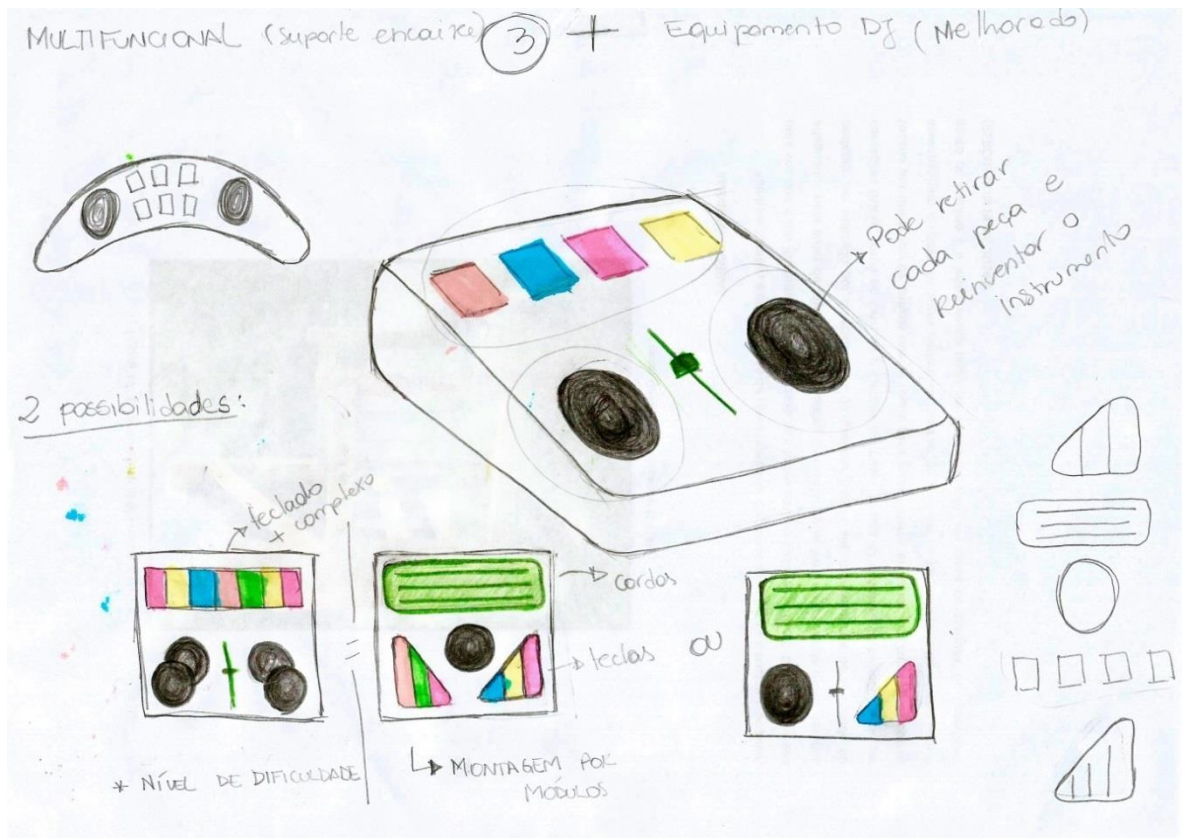 MULTIFUNCIONAL (suporte encaixe) 3 + Equipamento DJ (Melhorado)
Pode retirar
cada peça e
Reinventar o
instrumento
2 possibilidades:
teclado
+ complexo
cordas
teclas
=
ou
* NÍVEL DE DIFICULDADE
MONTAGEM POR
MÓDULOS